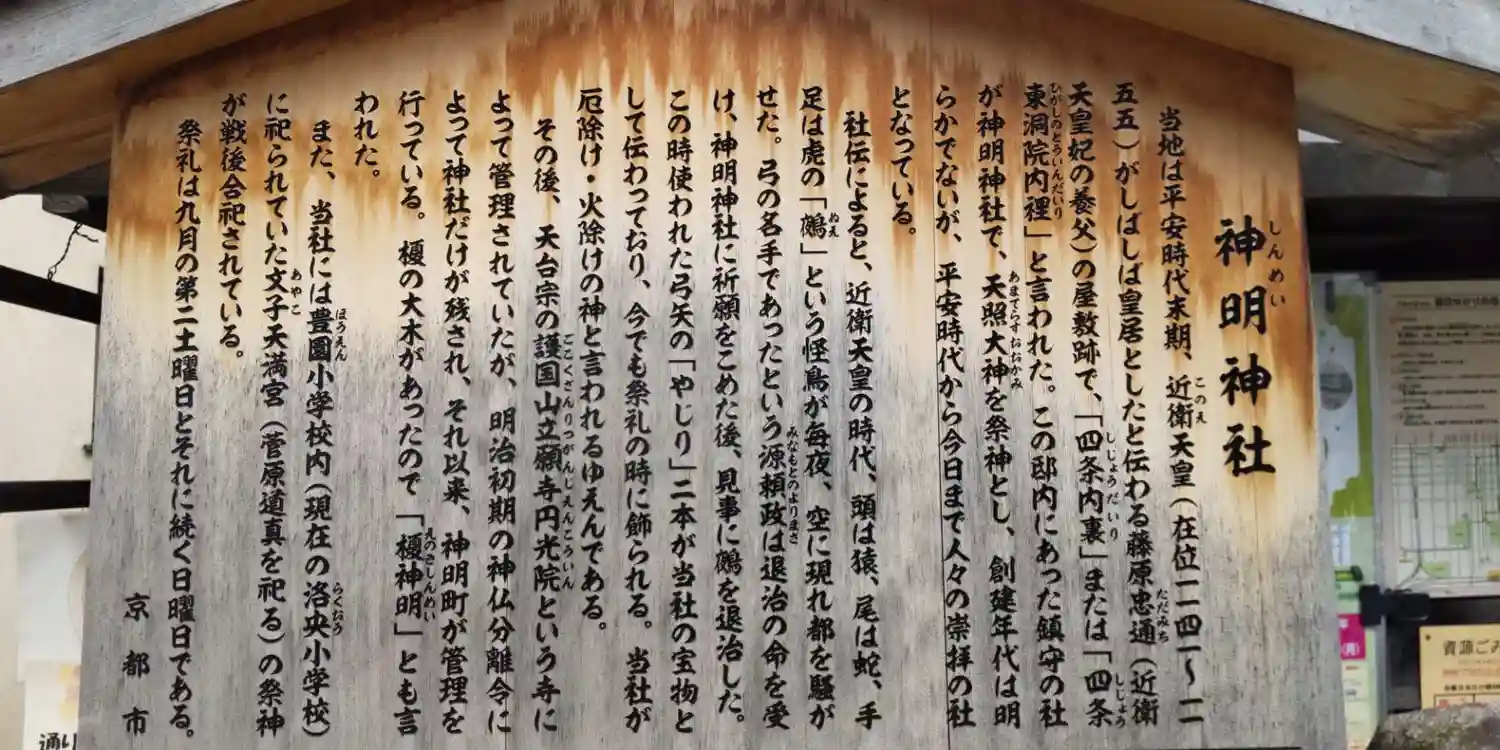 神明神社
しんめい
当地は平安時代末期、近衛天皇（在位一一四一～一一
五五）がしばしば皇居としたと伝わる藤原忠通（近衛
天皇妃の養父）の屋敷跡で、「四条内裏」または「四条
東洞院内裡」と言われた。この邸内にあった鎮守の社
が神明神社で、天照大神を祭神とし、創建年代は明
らかでないが、平安時代から今日まで人々の崇拝の社
となっている。
社伝によると、近衛天皇の時代、頭は猿、尾は蛇、手
足は虎の「鵺」という怪鳥が毎夜、空に現れ都を騒が
せた。弓の名手であったという源頼政は退治の命を受
け、神明神社に祈願をこめた後、見事に鵺を退治した。
この時使われた弓矢の「やじり」二本が当社の宝物と
して伝わっており、今でも祭礼の時に飾られる。当社が
厄除け・火除けの神と言われるゆえんである。
その後、天台宗の護国山立願寺円光院という寺に
よって管理されていたが、明治初期の神仏分離令に
よって神社だけが残され、それ以来、神明町が管理を
行っている。榎の大木があったので「榎神明」とも言
われた。
また、当社には豊園小学校内（現在の洛央小学校）
に祀られていた文子天満宮（菅原道真を祀る）の祭神
が戦後合祀されている。
祭礼は九月の第二土曜日とそれに続く日曜日である。
京都市
通り
資源ごみ